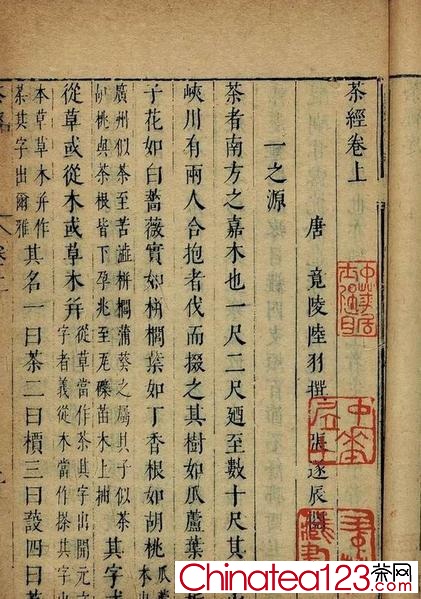 茶經卷上
唐 竟陵陸羽撰 張遂辰閱
一之源
茶者南方之嘉木也一尺二尺廼至數十尺其
峽川有兩人合抱者伐而掇之其樹如瓜蘆葉
子花如白薔薇實如栟櫚葉如丁香根如胡桃
廣州似茶至苦澁栟櫚蒲葵之屬其子似茶
胡桃與茶根皆下孕兆至瓦礫苗木上抽
其字
從草或從木或草木并
從草當作茶其字出開元
字者義從木當作搽其字
本草草木并作
茶其字出爾雅
其名一曰茶二曰檟三曰蔎四曰
Chinatea123.com
茶网